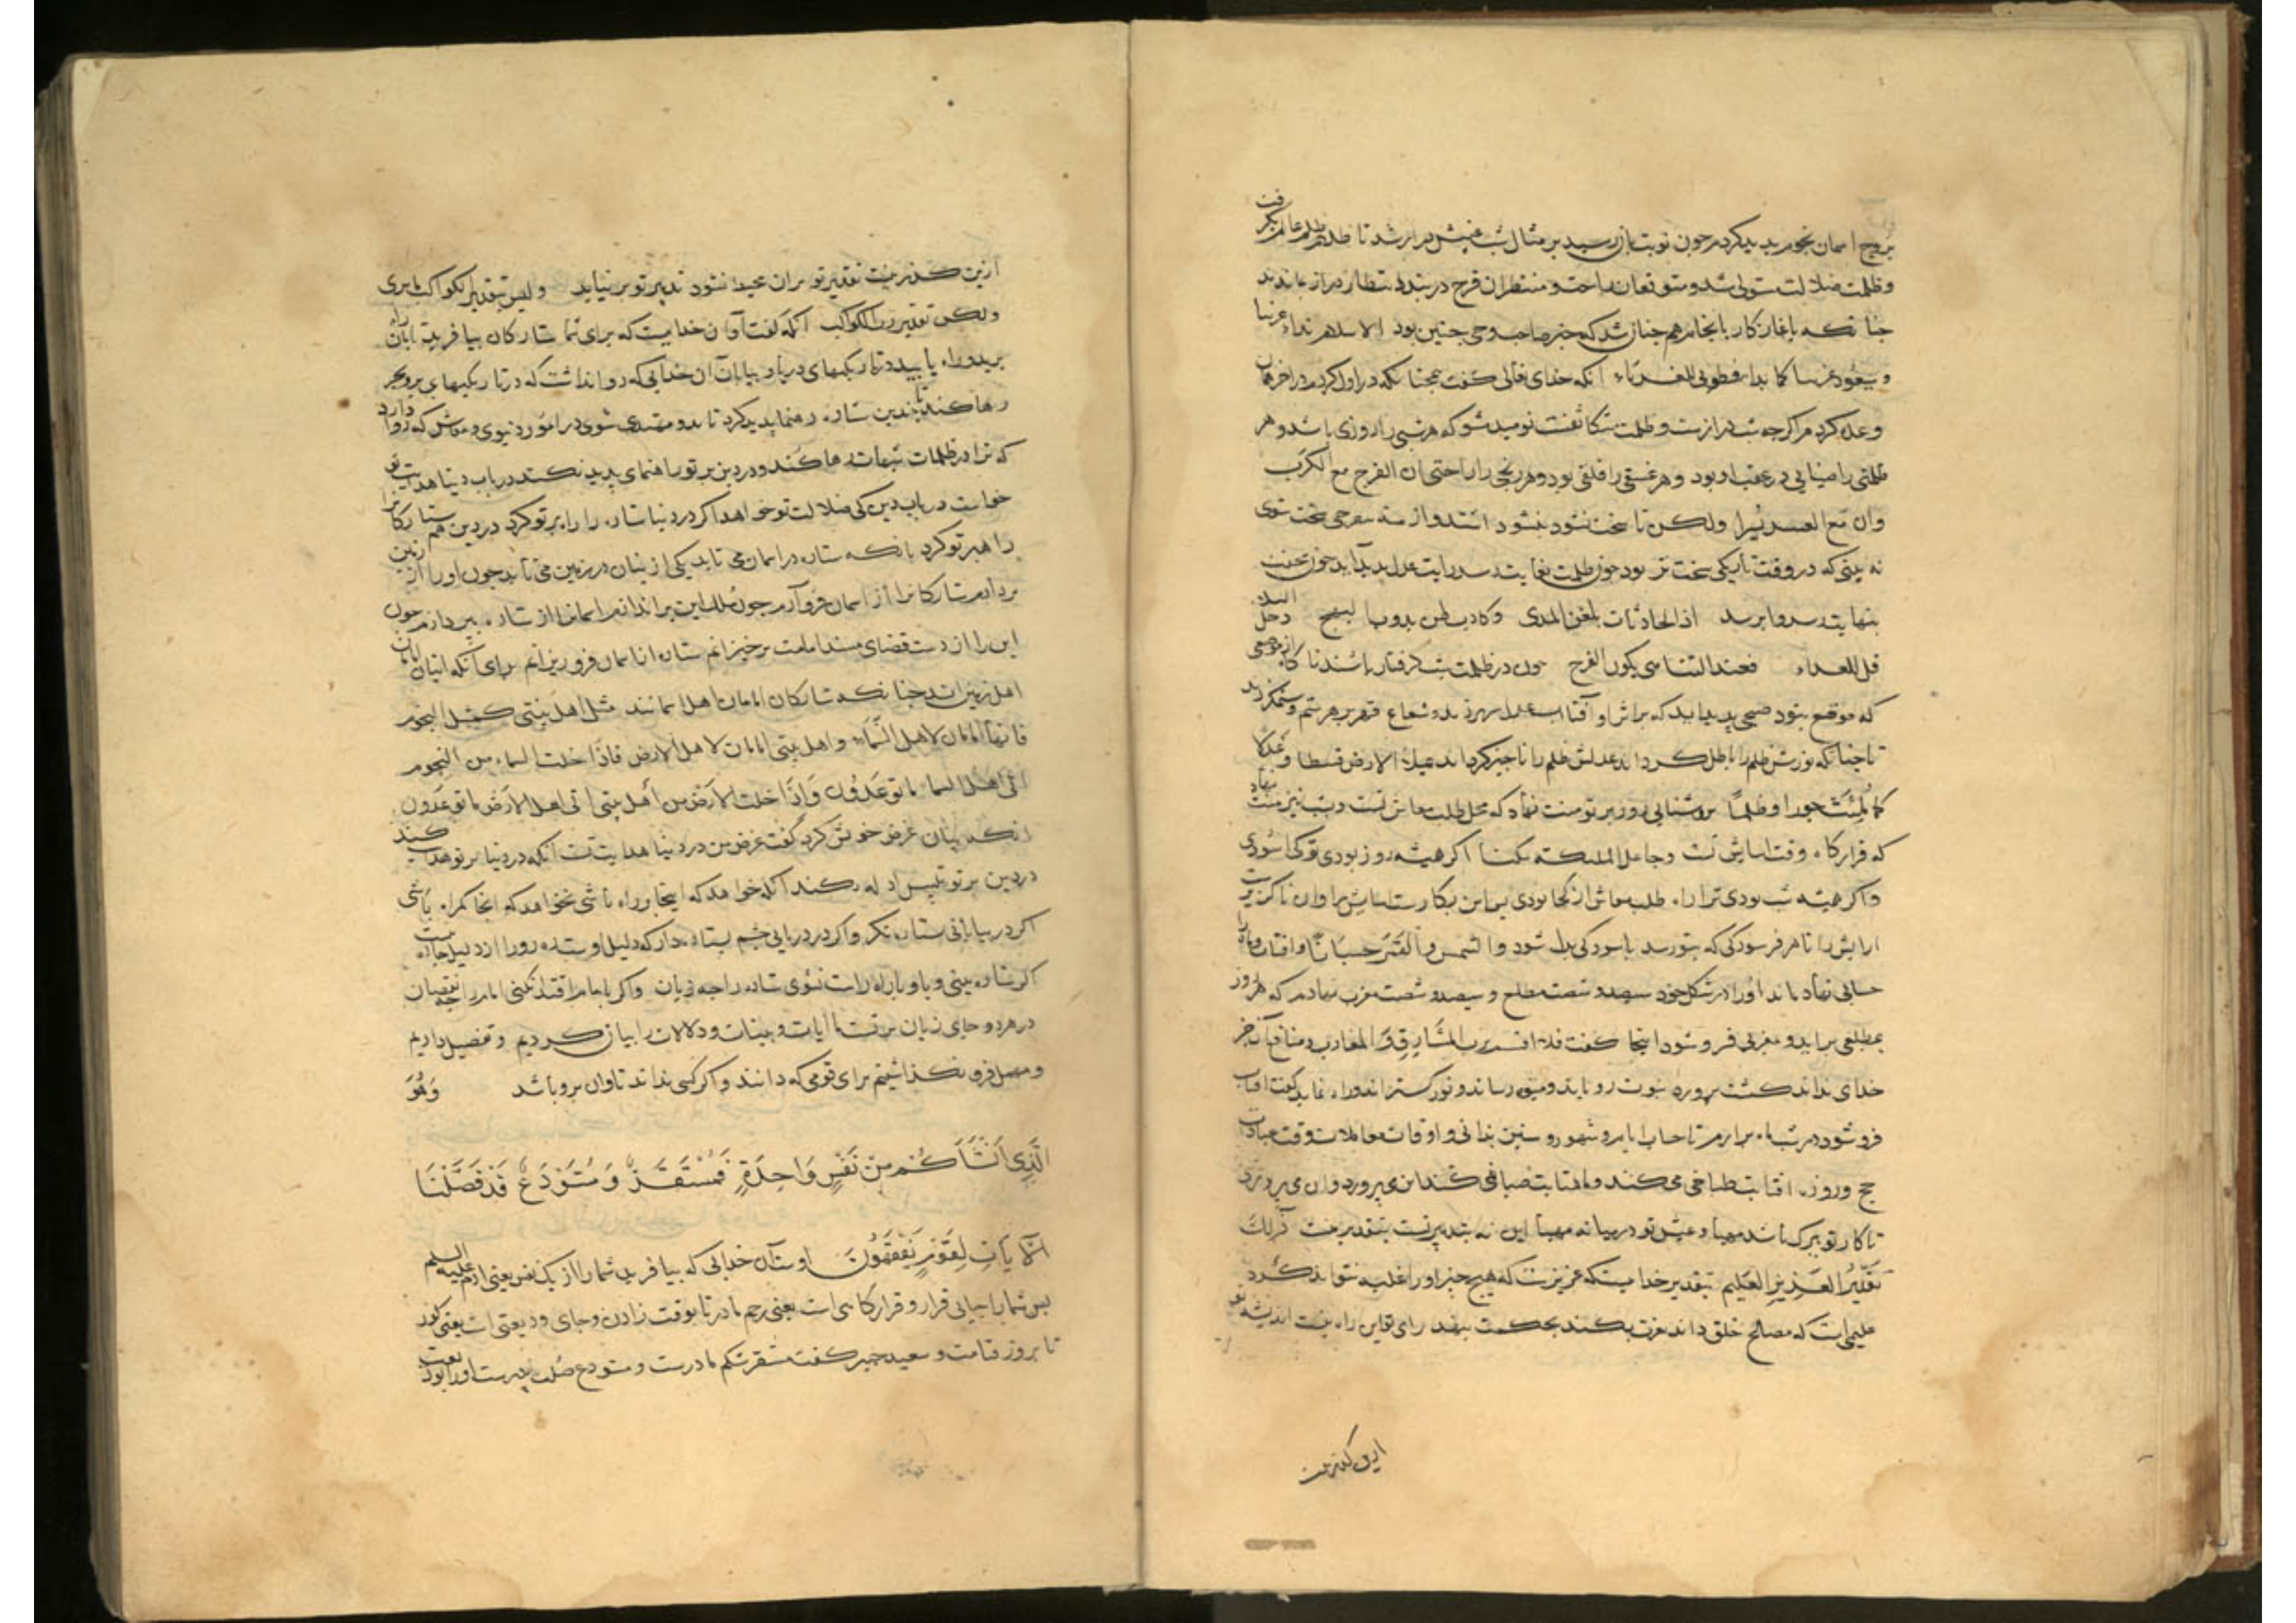 بروج اسمان نجوم پدید کردم چون نوبت باز رسید بر مثال شب غیبتش دراز شد تا ظلم ظلم عالم بگرفت
و ظلمت ضلالت مستولی شد و متوقعان راحت و منتظران فرج در بند انتظار دراز بماندند
چنانکه باغاز کار بانجام هم چنان شد که خبر صاحب وحی چنین بود الاسلام بداء غریبا
و سیعود غریبا کما بدا فطوبی للغرباء انکه خدای تعالی گفت همچنانکه در اول کردم در اخر همان
وعده کردم اگر چه شب درازست و ظلمت متکاثفست نومید مشو که هر شبی را روزی باشد و هر
ظلمتی را ضیایی در عقب او بود و هر غسقی را فلقی بود و هر رنجی را راحتی ان الفرج مع الکرب
وان مع العسر یسرا ولکن تا سخت نشود نشود اشتد ازمة تنفرجی سخت شوی
نه بینی که در وقت تاریکی سخت تر بود چون ظلمت بغایت رسد رایت عدل پدید آید چون محنت
بنهایت رسد وا برسد اذا الحادثات بلغن المدی وکادت لهن تذوب المهج وحل البلاء
وقل العزاء فعند التناهی یکون الفرج چون در ظلمت شب گرفتار باشند ناگاه از موضعی
که موقع نبود صبحی پدید اید که بر اثر او آفتاب عدل سر برزند و شعاع قهر بر هر ستم و ستمگر زند
تا چنانکه نورش ظلم را باطل گرداند عدلش ظلم را ناچیز گرداند یملأ الارض قسطا وعدلا
کما ملئت جورا وظلما بروشنایی روز بر تو منت نهاد که محل طلب معاش تست و شب نیز منت نهاد
که قرارگاه و وقت اسایش تست وجاعل اللیل سکنا اگر همیشه روز بودی تو کی اسودی
واگر همیشه شب بودی ترا راه طلب معاش از کجا بودی پس این بکارست اسایش را وان ناگزیرست
ارایش را تا هر فرسودگی که بتو رسد باسودگی بدل شود والشمس والقمر حسبانا وافتاب وماه را
حسابی نهاد ماند او را در شکل خود سیصد و شصت مطلع و سیصد و شصت مغرب نهادم که هر روز
بمطلعی براید و بمغربی فرو شود اینجا گفت فلا اقسم برب المشارق والمغارب و منافع آن جز
خدای نداند کشت پرورد نبوت رویاند و میوه رساند و نور گستراند و راه نماید گفت افتاب
فرو شود در شب ماه برارم تا حساب ایام و شهور و سنین بدانی و اوقات معاملات و وقت عبادات
حج و روزه افتابت طباخی می کند و ماهتابت صباغی می کند این می پرورد وان می پروزد
تا کار تو ببرگ باشد مهیا و عیش تو در میانه مهنا این نه بتدبیر تست بتقدیر منست ذلک
تقدیر العزیز العلیم بتقدیر خداییست که عزیزست که هیچ چیز او را غلبه نتواند کرد
علیمی است که مصالح خلق داند بعزت بکند بحکمت بنهد رای تو این راه نیست اندیشه تو
این گذر نیست
ازین گذر نیست تقدیر تو بران محیط نشود تدبیر تو بر نیاید ولیس بتقدیر لکواکب ما یری
ولکن تقدیر رب الکواکب انکه گفت آوآن خداییست که برای شما ستارگان بیافرید تا بان راه
برید وراه یابید در تاریکیهای دریا و بیابان آن خدایی که روا نداشت که در تاریکیهای بر و بحر
رها کند تا چندین ستاره رهنما پدید کرد تا بدو مهتدی شوی در امور دنیوی و معاش کی روا دارد
که ترا در ظلمات شبهات رها کند و در دین بر تو راهنمای پدید نکند در باب دنیا هدایت تو
خواست در باب دین کی ضلالت تو خواهد اگر در دنیا ستاره را راهبر تو کرد در دین هم ستارگانرا
راهبر تو کرد بانکه ستاره در اسمان می تابد یکی از ینان در زمین می تابد چون او را از زمین
بردارم ستارگانرا از اسمان فرو آرم چون ملک این براندازم اسمانرا از ستاره بپردازم چون
این را از دست قضای مسند امامت برخیزانم ستاره از اسمان فرو ریزانم برای آنکه اینان امان
اهل زمین اند چنانکه ستارگان امان اهل اسمانند مثل اهل بیتی کمثل النجوم
فانها امان لاهل السماء واهل بیتی امان لاهل الارض فاذا خلت السماء من النجوم
اتی اهل السماء ما توعدون واذا خلت الارض من اهل بیتی اتی اهل الارض ما توعدون
انکه بیان غرض خویش کرد گفت غرض من در دنیا هدایت تست انکه در دنیا بر تو هدایت کند
در دین بر تو تلبیس ادله نکند انکه خواهد که اینجا براه باشی نخواهد که انجا گمراه باشی
اگر در بیابانی ستاره نگر واگر در دریایی چشم بستاره دار که دلیل اوست ره رو را از دلیل چاره نیست
اگر ستاره بینی و باو براه راست نشوی ستاره را چه زیان واگر بامام اقتدا نکنی امام را چه نقصان
در هر دو جای زیان بر تست ما ایات و بینات و دلالات را بیان کردیم و تفصیل دادیم
و مهمل فرو نگذاشتیم برای قومی که دانند واگر کسی نداند تاوان برو باشد وَهُوَ
الَّذِی اَنْشَاَکُمْ مِنْ نَفْسٍ وَاحِدَةٍ فَمُسْتَقَرٌّ وَ مُسْتَوْدَعٌ قَدْ فَصَّلْنَا
الْآیَاتِ لِقَوْمٍ یَفْقَهُونَ اوست آن خدایی که بیافرید شما را از یک نفس یعنی ادم علیه السلم
پس شما را بیانی قرار و قرارگاهی است یعنی رحم مادر تا بوقت زادن و جای ودیعتی است یعنی گور
تا بروز قیامت و سعید جبیر گفت مستقر شکم مادرست و مستودع صلب پدرست